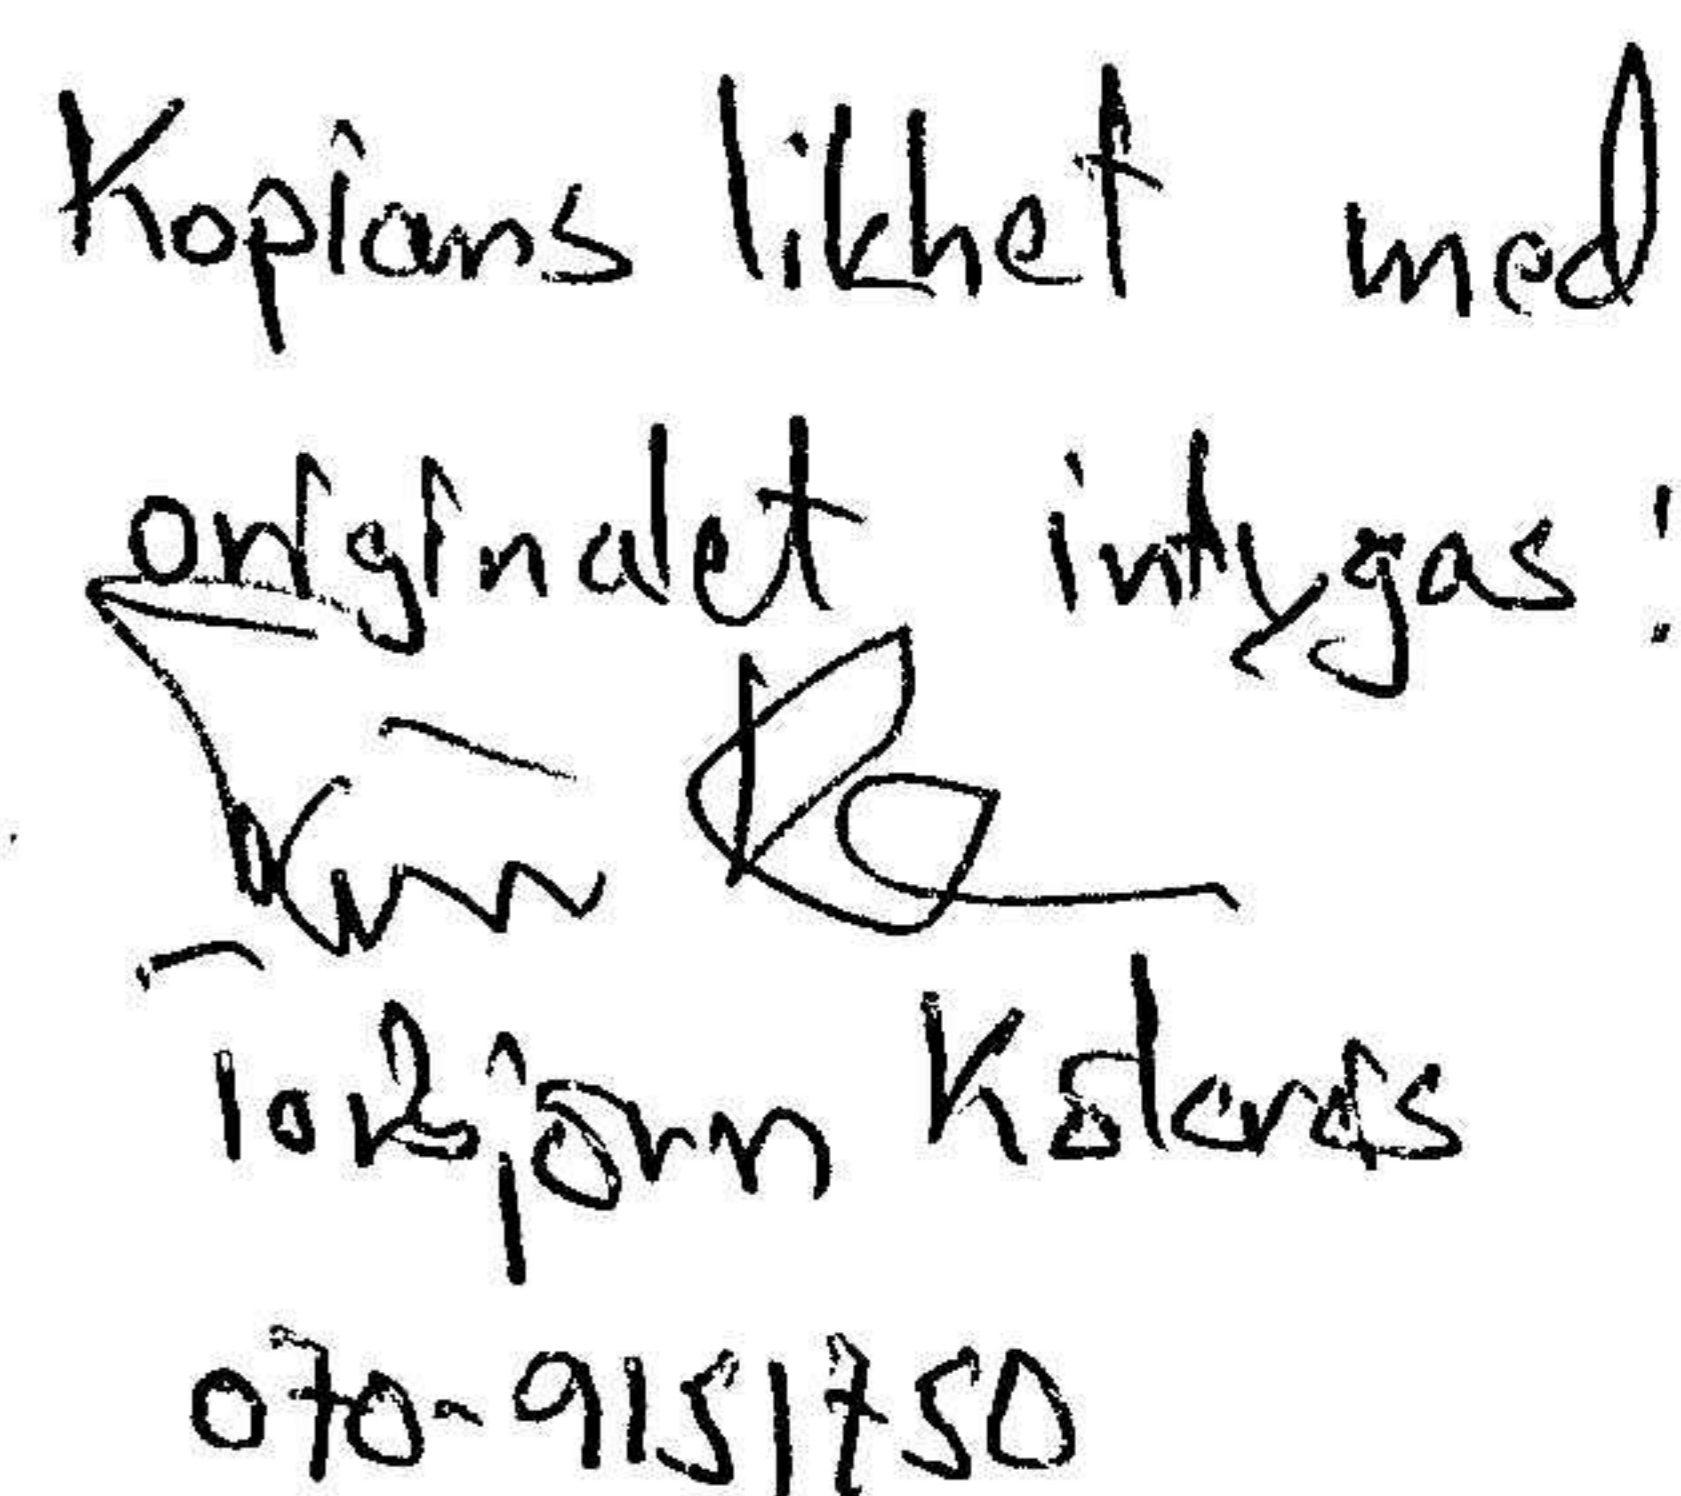 Kopians likhet med
originalet intygas!
Torbjörn
070-9151750